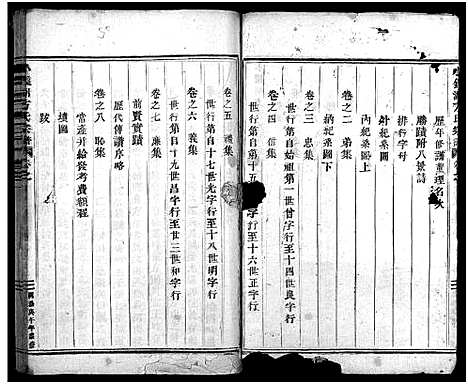 歷年修譜董理名次
勝蹟附八景詩
排行字母
內紀桑圖上
納紀桑圖下
卷之三 忠集
世行自始祖第一世甘字行至十四世良字行
卷之四 孝集
世行自第十五世 字行至十六世正字行
卷之五 義集
世行自十七世光字行至十八世明字行
卷之六 節集
世行自十九世昌字行至廿三世和字行
卷之七 廉集
前賢實蹟
歷代傳譜序略
卷之八 恥集
當產并給發考費額程
墳圖
跋